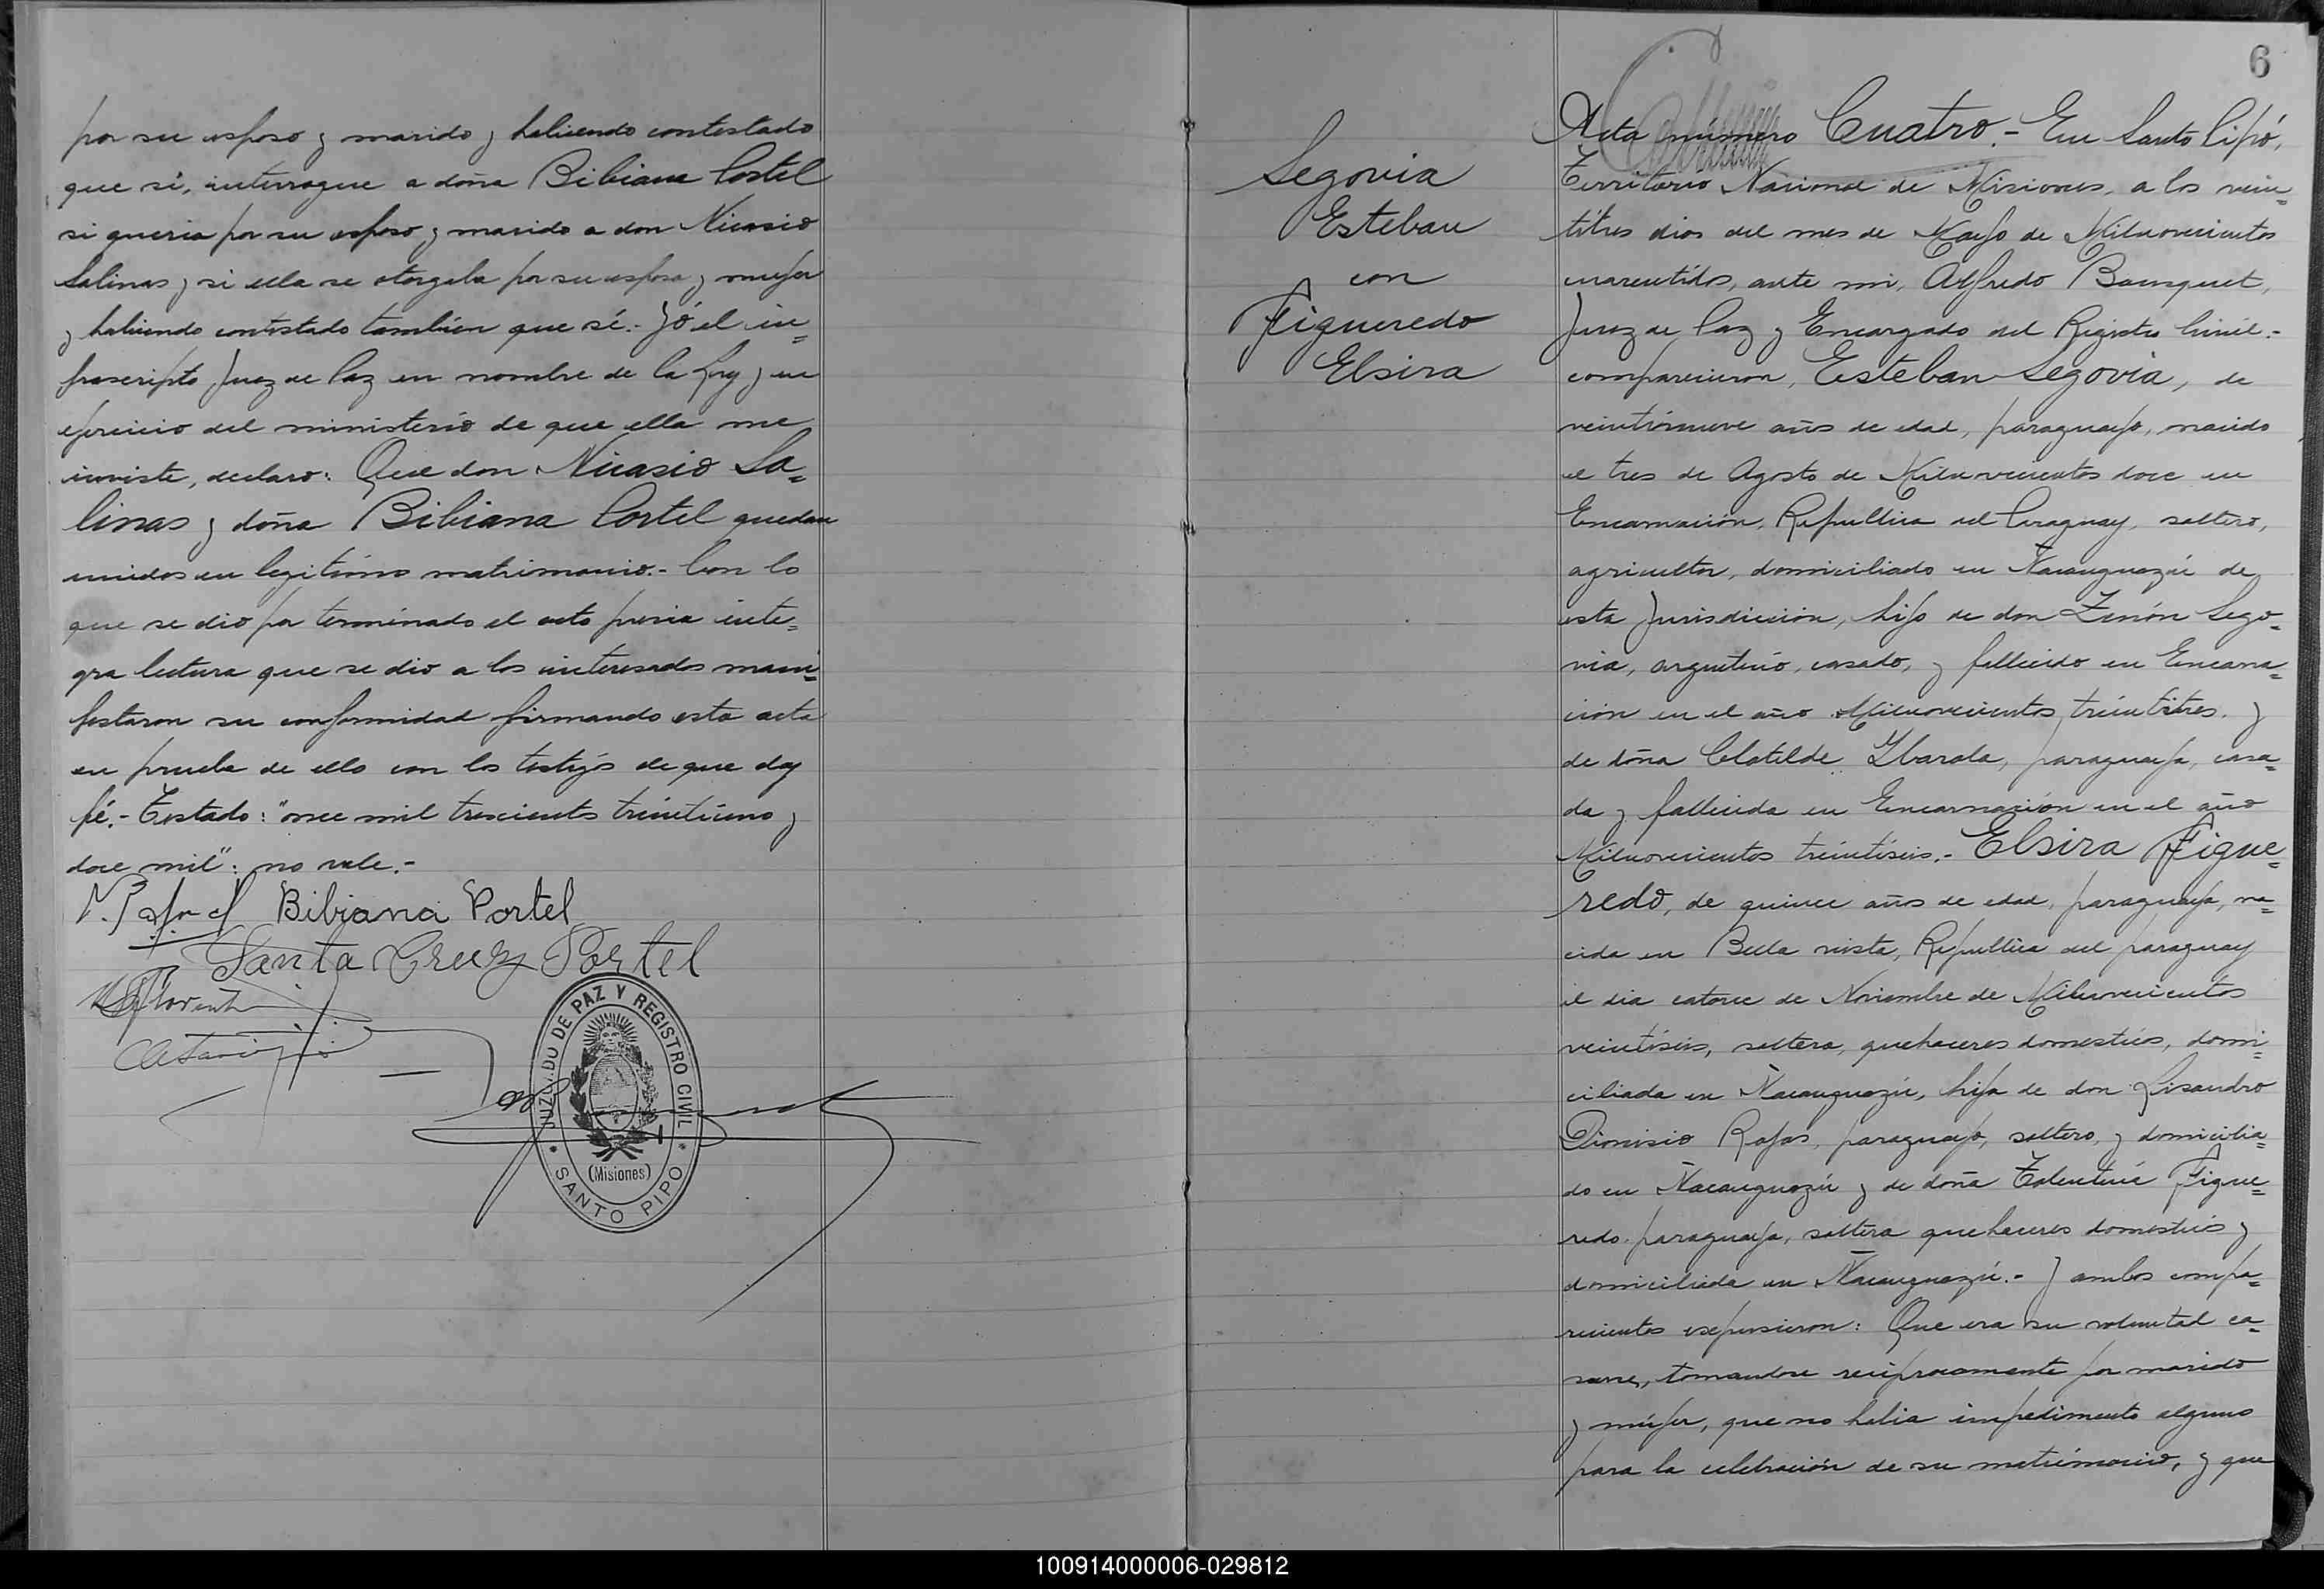 por su esposo y marido y habiendo contestado
que sí, interrogue a doña Bibiana Portel
si queria por su esposo y marido a don Nicasio
Salinas y si ella se otorgaba por su esposa y mujer
y habiendo contestado tambien que sé.- Yó el in=
frascripto, Juez de Paz en nombre de la Ley y en
ejercicio del ministerio de que ella me
inviste, declaro: Que don Nicasio Sa=
linas y doña Bibiana Portel quedan
unidos en legítimo matrimonio.- Con lo
que se dio por terminado el acto previa inte=
gra lectura que se dio a los interesados mani=
festaron su conformidad firmando esta acta
en prueba de ello con los testigos de que doy
fé.- Testado: "once mil trescientos treintiuno y
doce mil": no vale.-
Bibiana Portel
Santa Cruz Portel
JUZGADO DE PAZ Y REGISTRO CIVIL
(Misiones)
SANTO PIPO
6
Segovia
Esteban
con
Figueredo
Elsira
Acta número Cuatro.- En Santo Pipó,
Territorio Nacional de Misiones, a los vein=
titres dias del mes de Mayo de Milnovecientos
cuarentidos, ante mi, Alfredo Bousquet,
Juez de Paz y Encargado del Registro Civil.-
comparecieron, Esteban Segovia, de
veintinueve años de edad, paraguayo, nacido
el tres de Agosto de Milnovecientos doce en
Encarnación, Republica del Paraguay, soltero,
agricultor, domiciliado en Ñacanguazú de
esta Jurisdicción, hijo de don Zenón Sego=
via, argentino, casado, y fallecido en Encarna=
ción en el año Milnovecientos treintitres. y
de doña Clotilde Ybarola, paraguaya, casa=
da y fallecida en Encarnación en el año
Milnovecientos treintiseis.- Elsira Figue=
redo, de quince años de edad, paraguaya, na=
cida en Bella vista, Republica del paraguay
el dia catorce de Noviembre de Milnovecientos
veintiseis, soltera, quehaceres domesticos, domi=
ciliada en Ñacanguazú, hija de don Lisandro
Dionisio Rojas, paraguayo, soltero, y domicilia=
do en Ñacanguazú y de doña Figue=
redo paraguaya, soltera quehaceres domesticos y
domiciliada en Ñacanguazú.- Y ambos compa=
recientes expusieron: Que era su voluntad ca=
sarse, tomandose reciprocamente por marido
y mujer, que no habia impedimento alguno
para la celebración de su matrimonio, y que
100914000006-029812